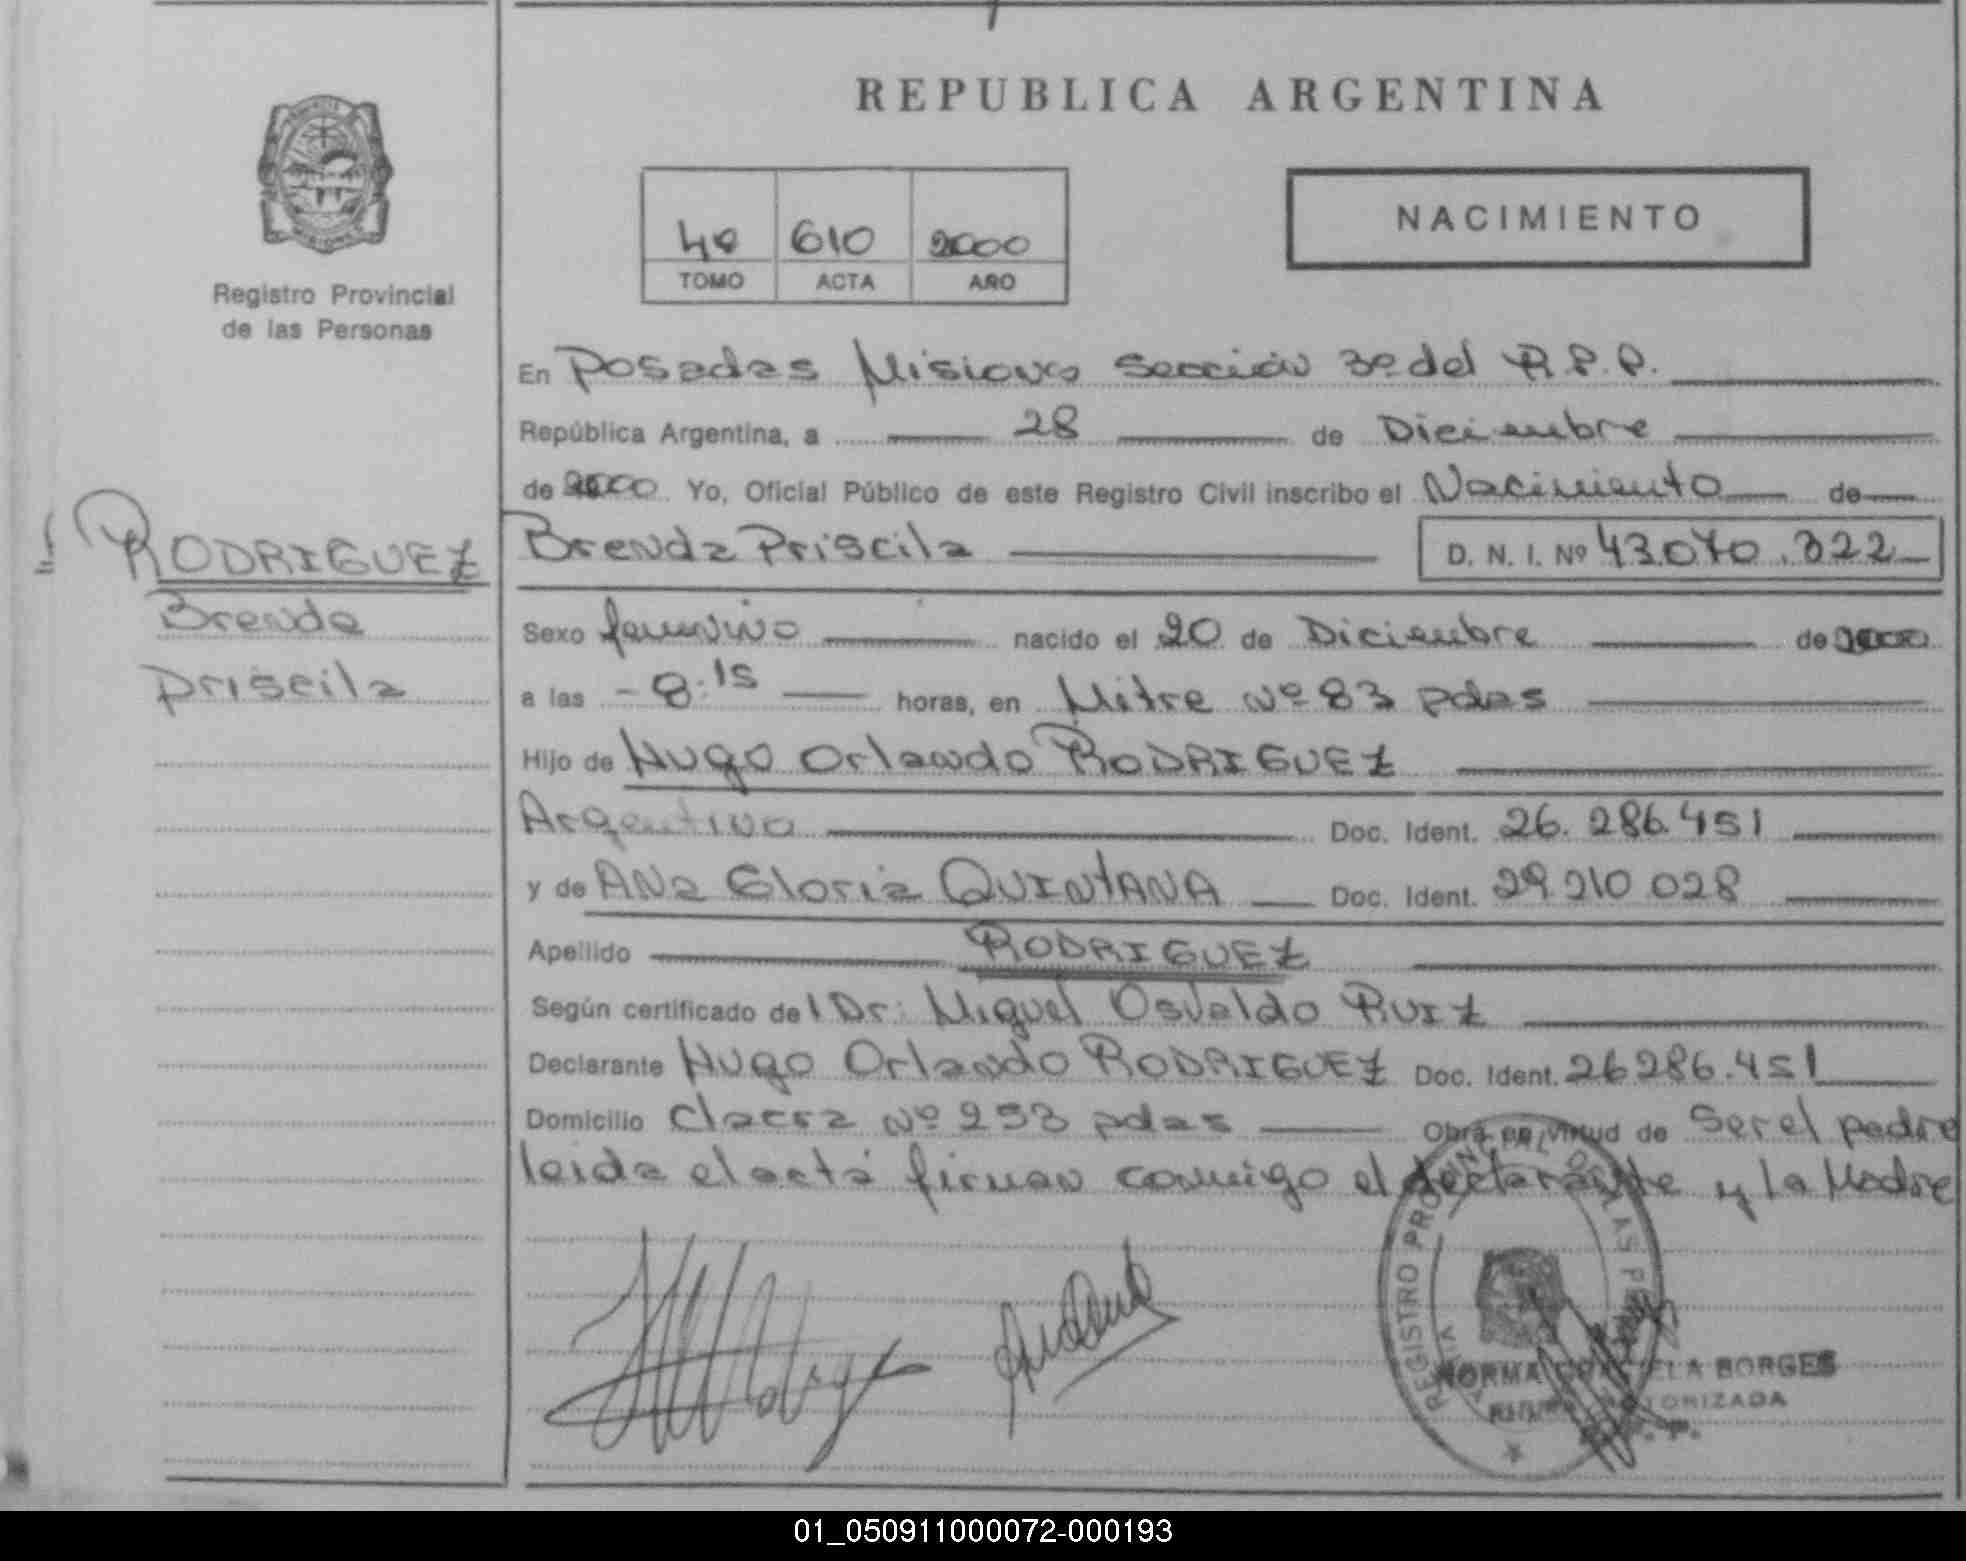 REPUBLICA ARGENTINA
NACIMIENTO
4º 610 2000
TOMO ACTA AÑO
Registro Provincial
de las Personas
En Posadas Misiones Sección 3º del R.P.P.
República Argentina, a 28 de Diciembre
de 2000 Yo, Oficial Público de este Registro Civil inscribo el Nacimiento de
RODRIGUEZ
Brenda
Priscila
Brenda Priscila D. N. I. Nº 43.070.322
Sexo femenino nacido el 20 de Diciembre de 2000
a las - 8:15 horas, en Mitre Nº 83 pdas
Hijo de Hugo Orlando RODRIGUEZ
Argentino Doc. Ident. 26.286.451
y de ANa Gloria QUINTANA Doc. Ident. 29.210.028
Apellido RODRIGUEZ
Según certificado del Dr: Miguel Osvaldo RUIZ
Declarante Hugo Orlando RODRIGUEZ Doc. Ident. 26286.451
Domicilio Nº 253 pdas Obra en virtud de Ser el padre
leida el acta firman conmigo el declarante y la Madre
REGISTRO PROVINCIAL DE LAS
NORMA GRACIELA BORGES
FIRMA AUTORIZADA
01_050911000072-000193